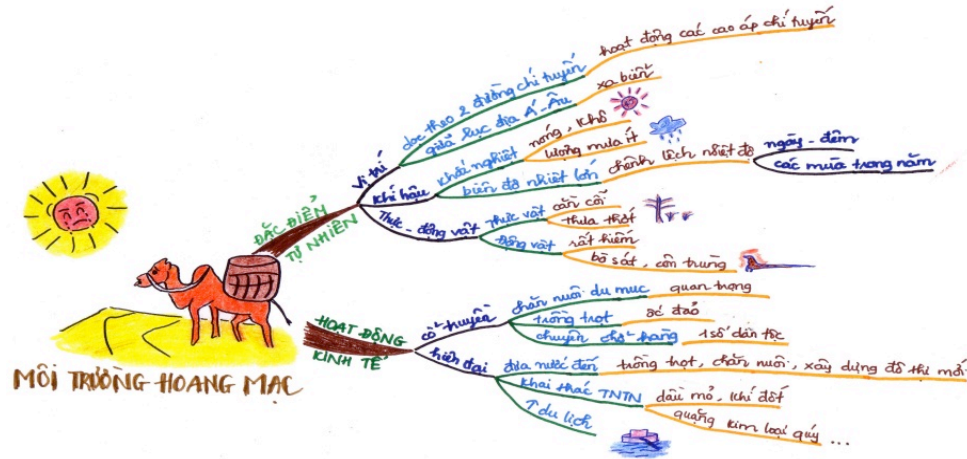 MÔI TRƯỜNG HOANG MẠC
ĐẶC ĐIỂM
TỰ NHIÊN
Vị trí
dọc theo 2 đường chí tuyến
hoạt động các cao áp chí tuyến
giữa lục địa Á-Âu
xa biển
Khí hậu
khắc nghiệt
nóng, khô
lượng mưa ít
biên độ nhiệt lớn
chênh lệch nhiệt độ
ngày - đêm
các mùa trong năm
Thực - động vật
Thực vật
cằn cỗi
thưa thớt
Động vật
rất hiếm
bò sát, côn trùng
HOẠT ĐỘNG
KINH TẾ
cổ truyền
chăn nuôi du mục
quan trọng
trồng trọt
ốc đảo
chuyên chở hàng
1 số dân tộc
hiện đại
đưa nước đến
trồng trọt, chăn nuôi, xây dựng đô thị mới
khai thác TNTN
dầu mỏ, khí đốt
quặng kim loại quý ...
↑ du lịch